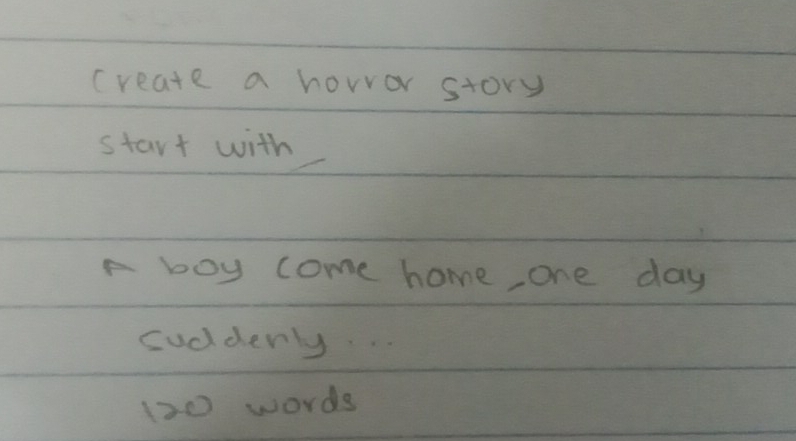 Create a horror story
start with_
A boy come home, one day
suddenly...
120 words